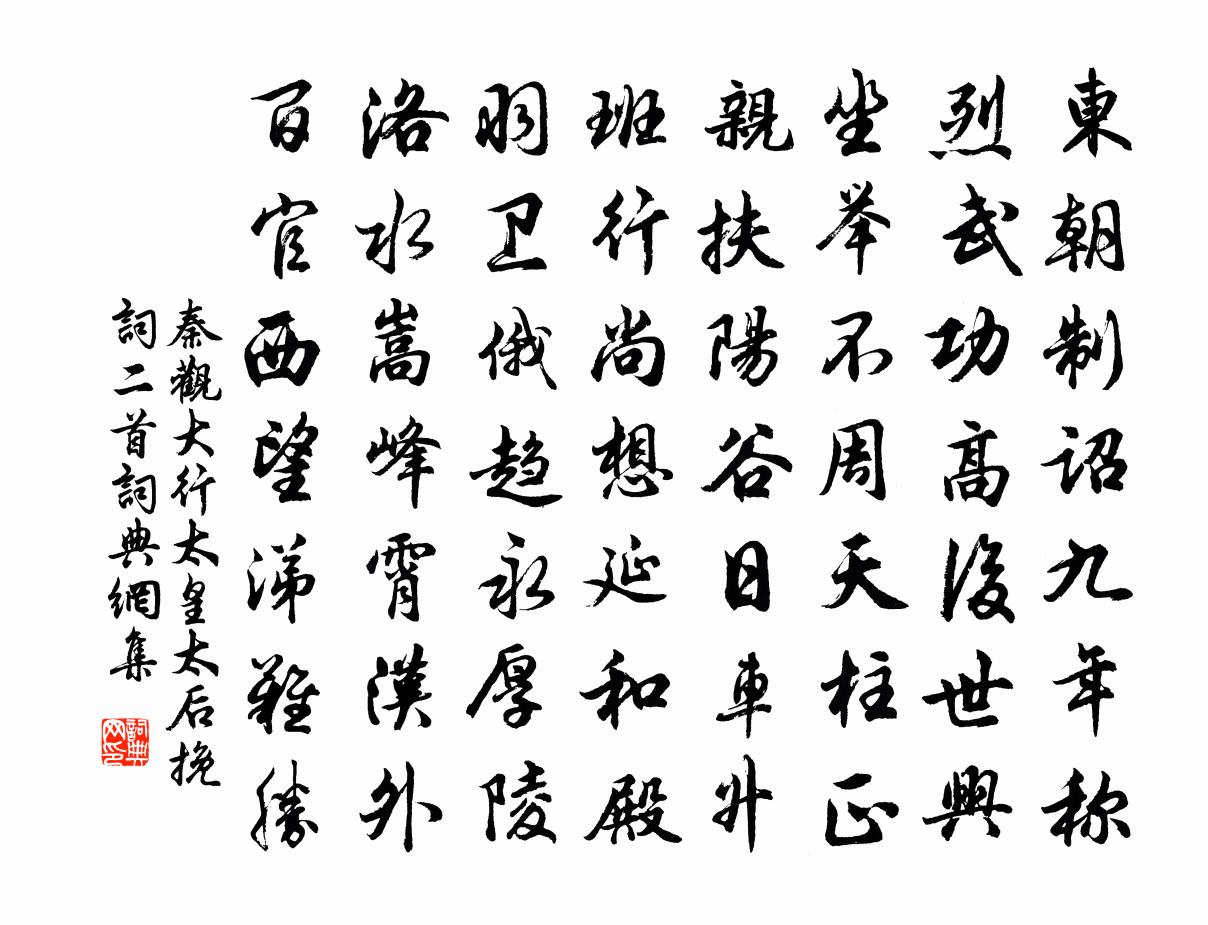 東朝制詔九年称
烈武功高後世興
坐举不周天柱正
親扶陽谷日車升
班行尚想延和殿
羽卫俄趋永厚陵
洛水嵩峰霄漢外
百官西望涕難勝
秦觀大行太皇太后挽
詞二首詞典網集
詞典网印